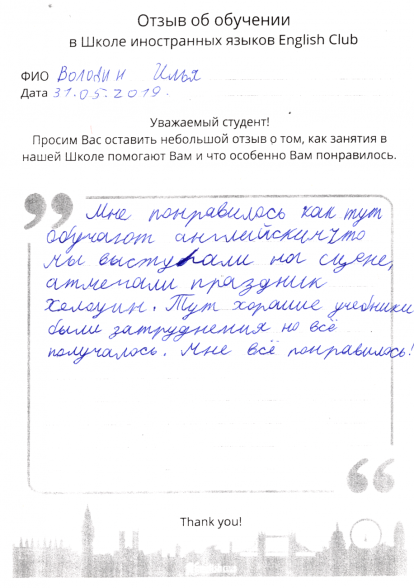 Отзыв об обучении
в Школе иностранных языков English Club
ФИО Володин Илья
Дата 31.05.2019.
Уважаемый студент!
Просим Вас оставить небольшой отзыв о том, как занятия в
нашей Школе помогают Вам и что особенно Вам понравилось.
Мне понравилось как тут
обучают английскимчто
мы выступали на сцене,
атмечали праздник
Хелоуин. Тут хорошие учебники
были затруднения но всё
получалось. Мне всё понравилось!
Thank you!